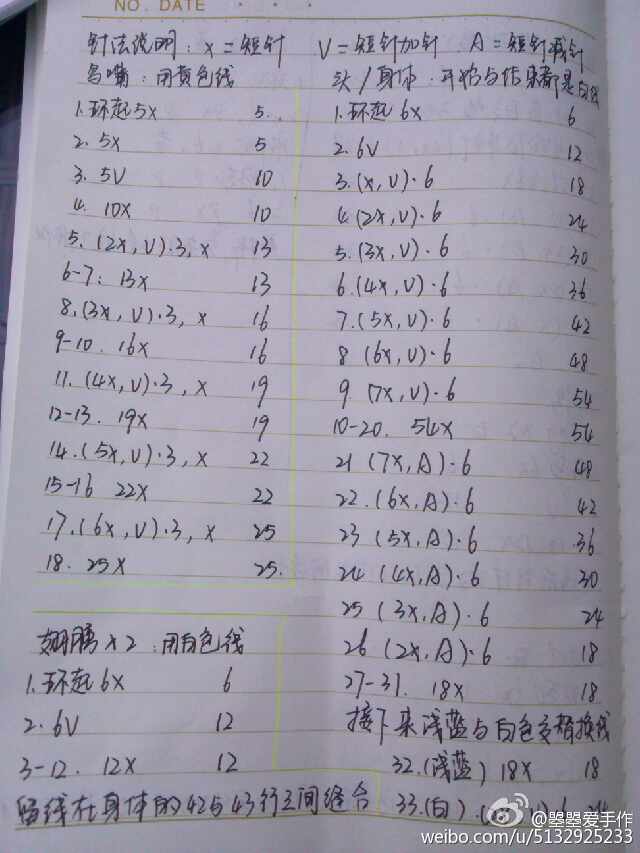 NO. DATE
针法说明：X=短针 V=短针加针 A=短针减针
鸟嘴：用黄色线
1.环起5X 5.
2. 5X 5
3. 5V 10
4. 10X 10
5. (2X,V)·3, X 13
6-7: 13X 13
8.(3X,V)·3, X 16
9-10. 16X 16
11. (4X,V)·3, X 19
12-13. 19X 19
14.(5X,V)·3, X 22
15-16 22X 22
17.(6X,V)·3, X 25
18. 25X 25.
翅膀X2：用白色线
1.环起6X 6
2. 6V 12
3-12. 12X 12
留线在身体的42与43行之间缝合
头/身体：开始与结束都是白线
1.环起6X 6
2. 6V 12
3.(X,V)·6 18
4.(2X,V)·6 24
5.(3X,V)·6 30
6.(4X,V)·6 36
7.(5X,V)·6 42
8 (6X,V)·6 48
9. (7X,V)·6 54
10-20. 54X 54
21 (7X,A)·6 48
22.(6X,A)·6 42
23 (5X,A)·6 36
24 (4X,A)·6 30
25 (3X,A)·6 24
26 (2X,A)·6 18
27-31. 18X 18
接下来浅蓝与白色交替换线
32.(浅蓝) 18X 18
33.(白) V)·6 24
@曌曌爱手作
weibo.com/u/5132925233